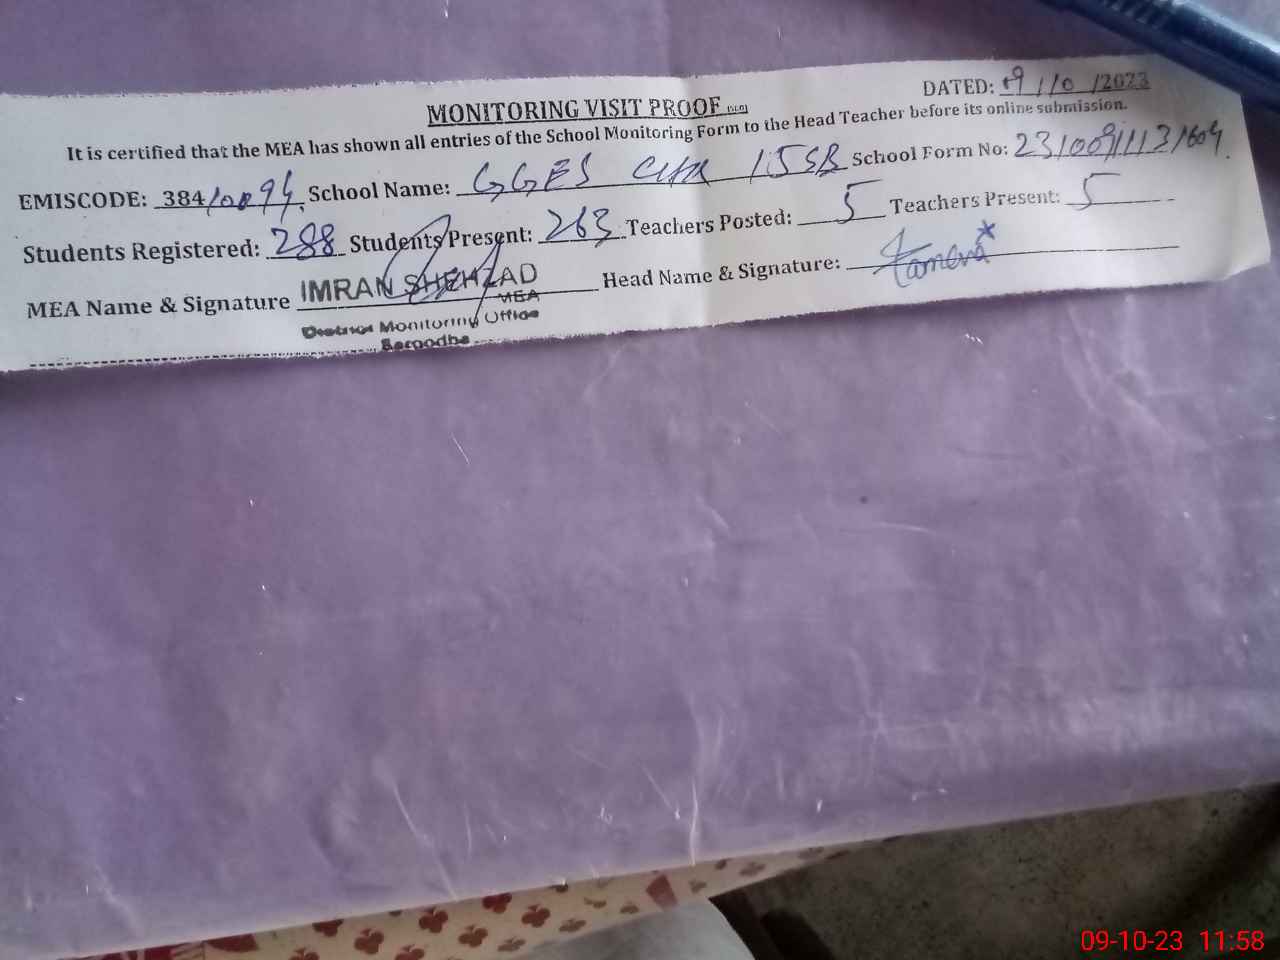 DATED: 09/10/2023
MONITORING VISIT PROOF
It is certified that the MEA has shown all entries of the School Monitoring Form to the Head Teacher before its online submission.
EMISCODE: 38410094 School Name: GGES CHK 15SB School Form No:
Students Registered: 288 Students Present: 263 Teachers Posted: 5 Teachers Present: 5
MEA Name & Signature IMRAN SHEHZAD Head Name & Signature:
MEA
District Monitoring Office
Sargodha
09-10-23 11:58